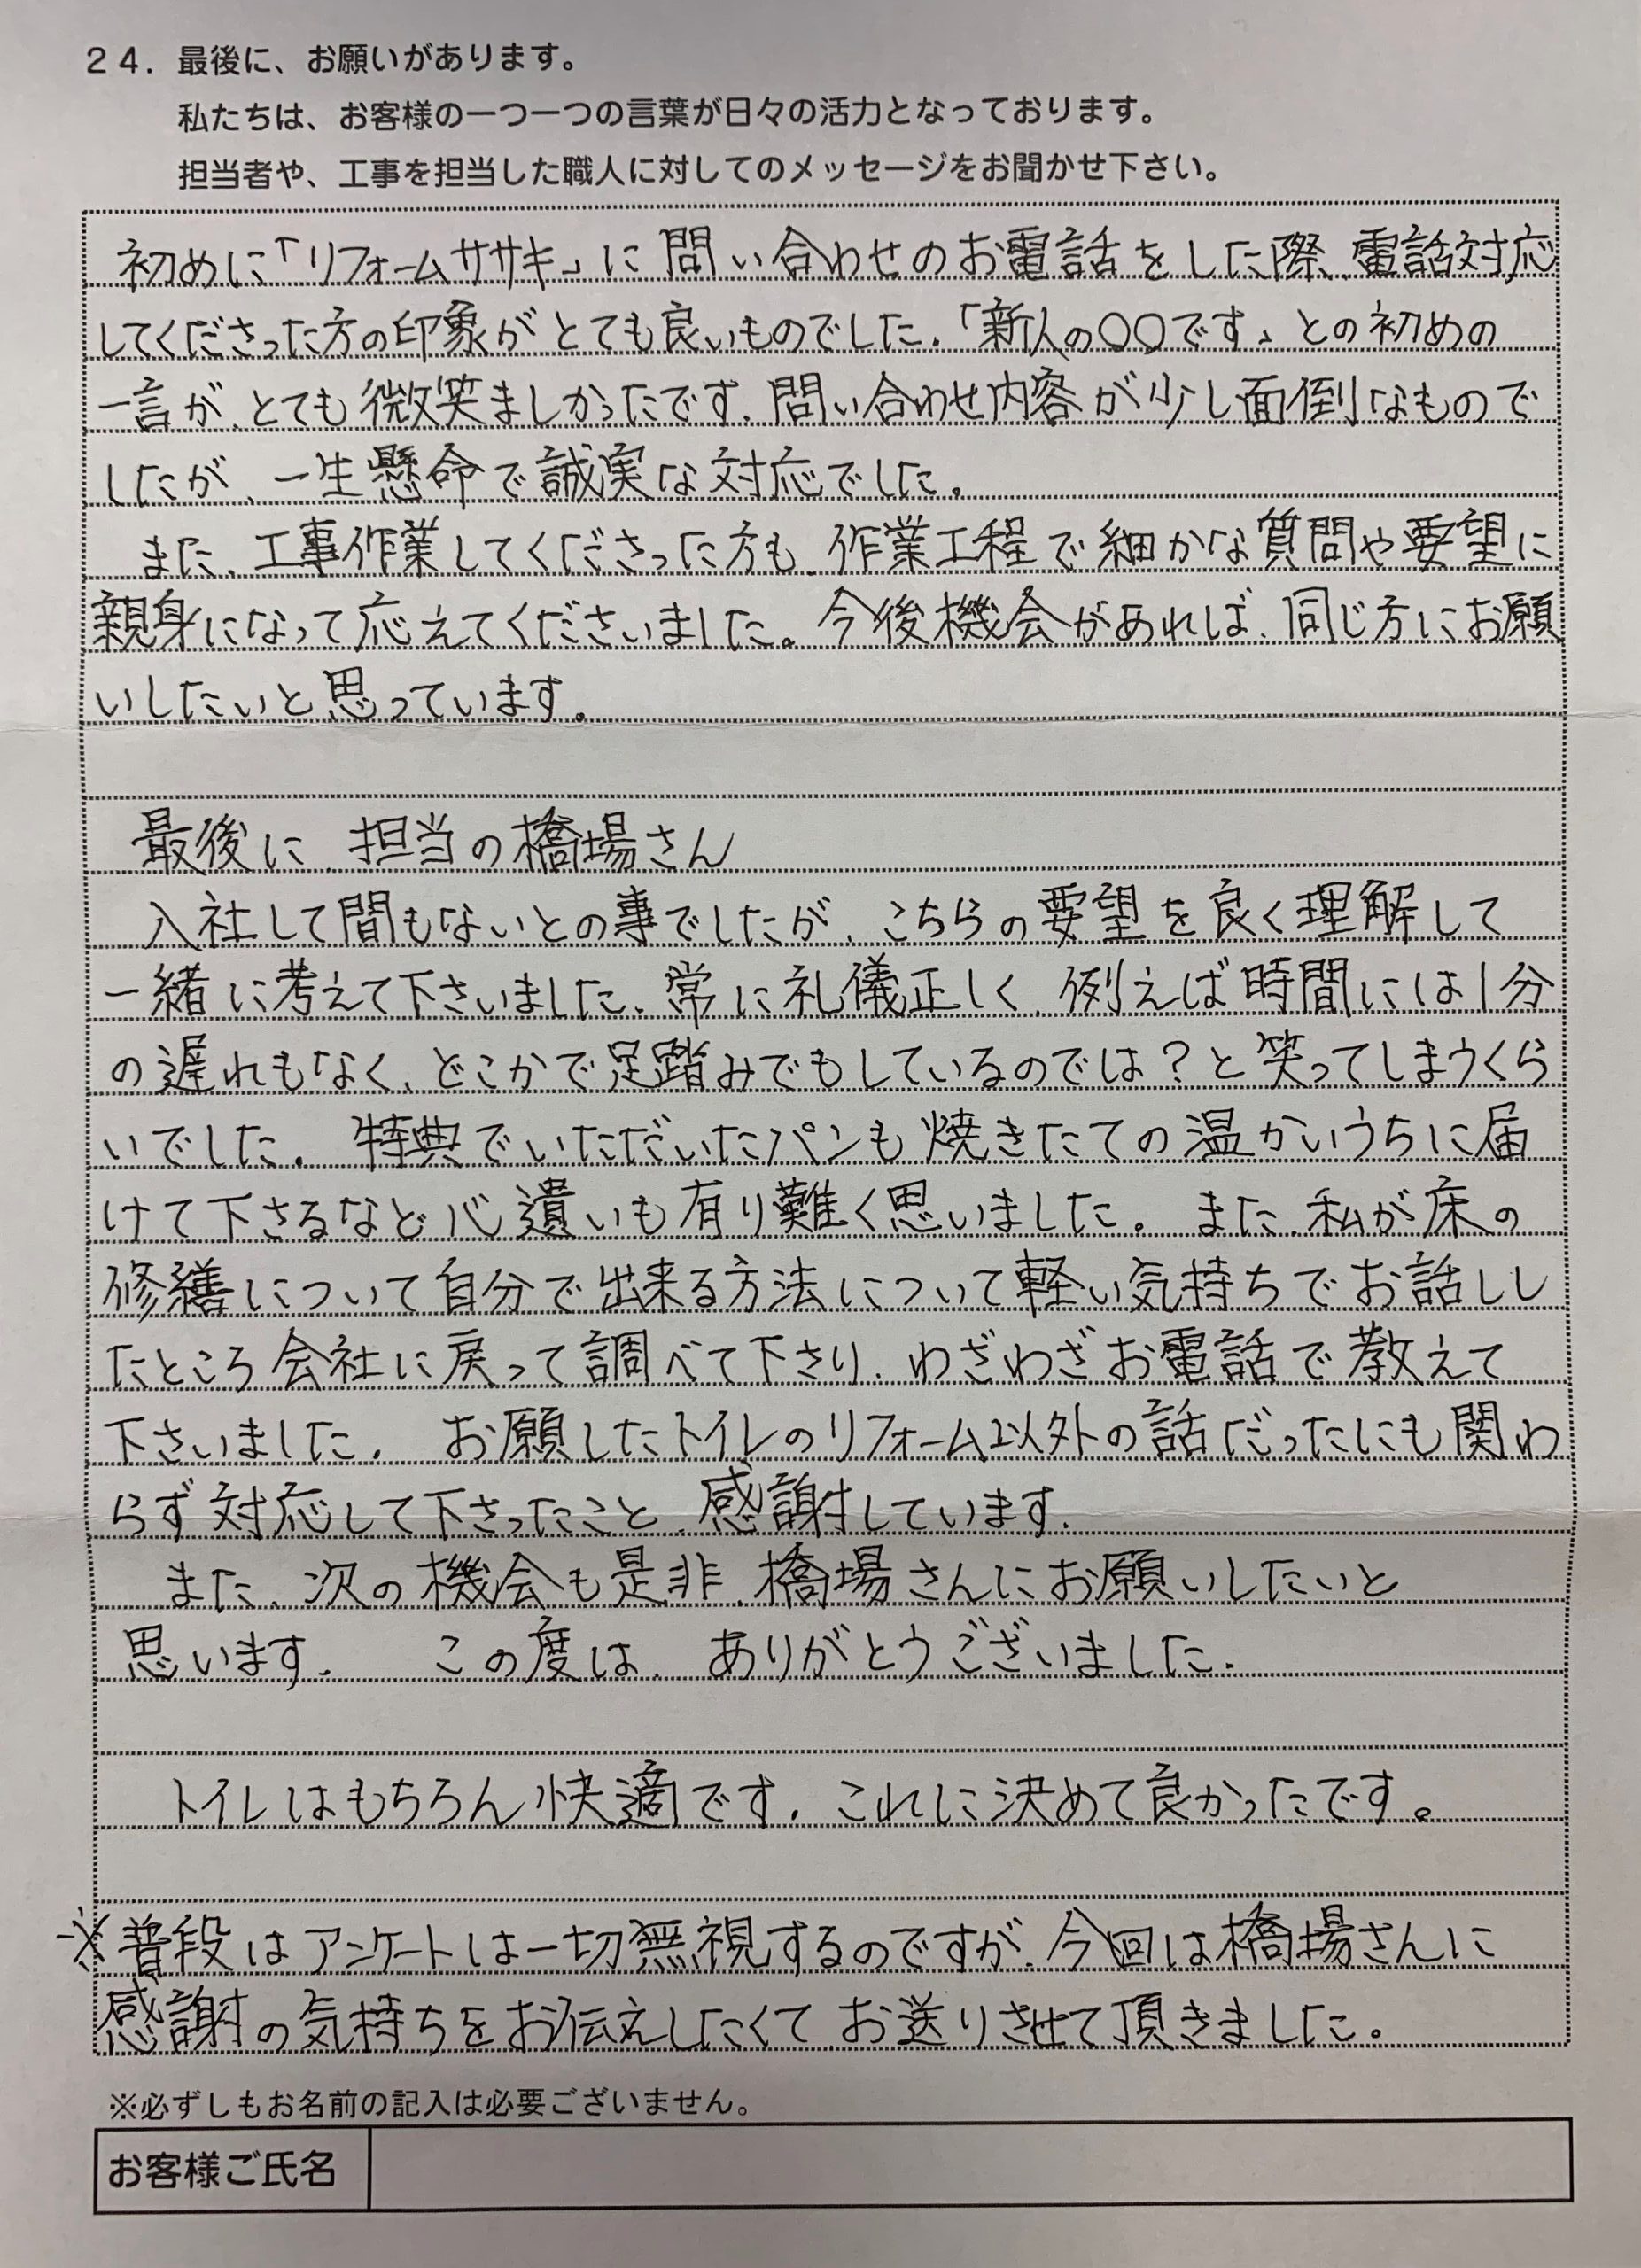 24. 最後に、お願いがあります。
私たちは、お客様の一つ一つの言葉が日々の活力となっております。
担当者や、工事を担当した職人に対してのメッセージをお聞かせ下さい。
初めに「リフォームササキ」に問い合わせのお電話をした際、電話対応
してくださった方の印象がとても良いものでした。「新人の〇〇です」との初めの
一言が、とても微笑ましかったです。問い合わせ内容が少し面倒なもので
したが、一生懸命で誠実な対応でした。
また、工事作業してくださった方も、作業工程で細かな質問や要望に
親身になって応えてくださいました。今後機会があれば、同じ方にお願
いしたいと思っています。
最後に、担当の橋場さん
入社して間もないとの事でしたが、こちらの要望を良く理解して
一緒に考えて下さいました。常に礼儀正しく、例えば時間には1分
の遅れもなく、どこかで足踏みでもしているのでは?と笑ってしまうくら
いでした。特典でいただいたパンも焼きたての温かいうちに届
けて下さるなど心遣いも有り難く思いました。また、私が床の
修繕について自分で出来る方法について軽い気持ちでお話しし
たところ会社に戻って調べて下さり、わざわざお電話で教えて
下さいました。お願したトイレのリフォーム以外の話だったにも関わ
らず対応して下さったこと、感謝しています。
また、次の機会も是非、橋場さんにお願いしたいと
思います。この度は、ありがとうございました。
トイレはもちろん快適です。これに決めて良かったです。
※普段はアンケートは一切無視するのですが、今回は橋場さんに
感謝の気持ちをお伝えしたくてお送りさせて頂きました。
※必ずしもお名前の記入は必要ございません。
お客様ご氏名